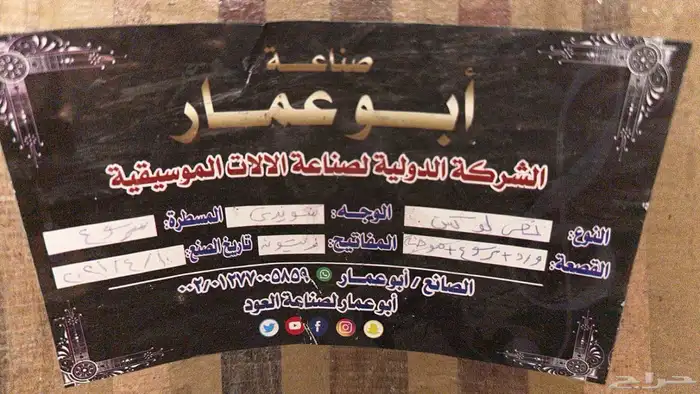 صناعة
أبو عمار
الشركة الدولية لصناعة الالات الموسيقية
النوع: نص لوكس الوجه: سويدى المسطرة: سرسوع
القصعة: ورد + سرسوع + موجنة المفاتيح: تاريخ الصنع: ٢٠٢١/٤/١٠
الصانع / أبو عمار ٠٠٢/٠١٢٧٧٠٠٥٨٥٩
أبو عمار لصناعة العود
حراج